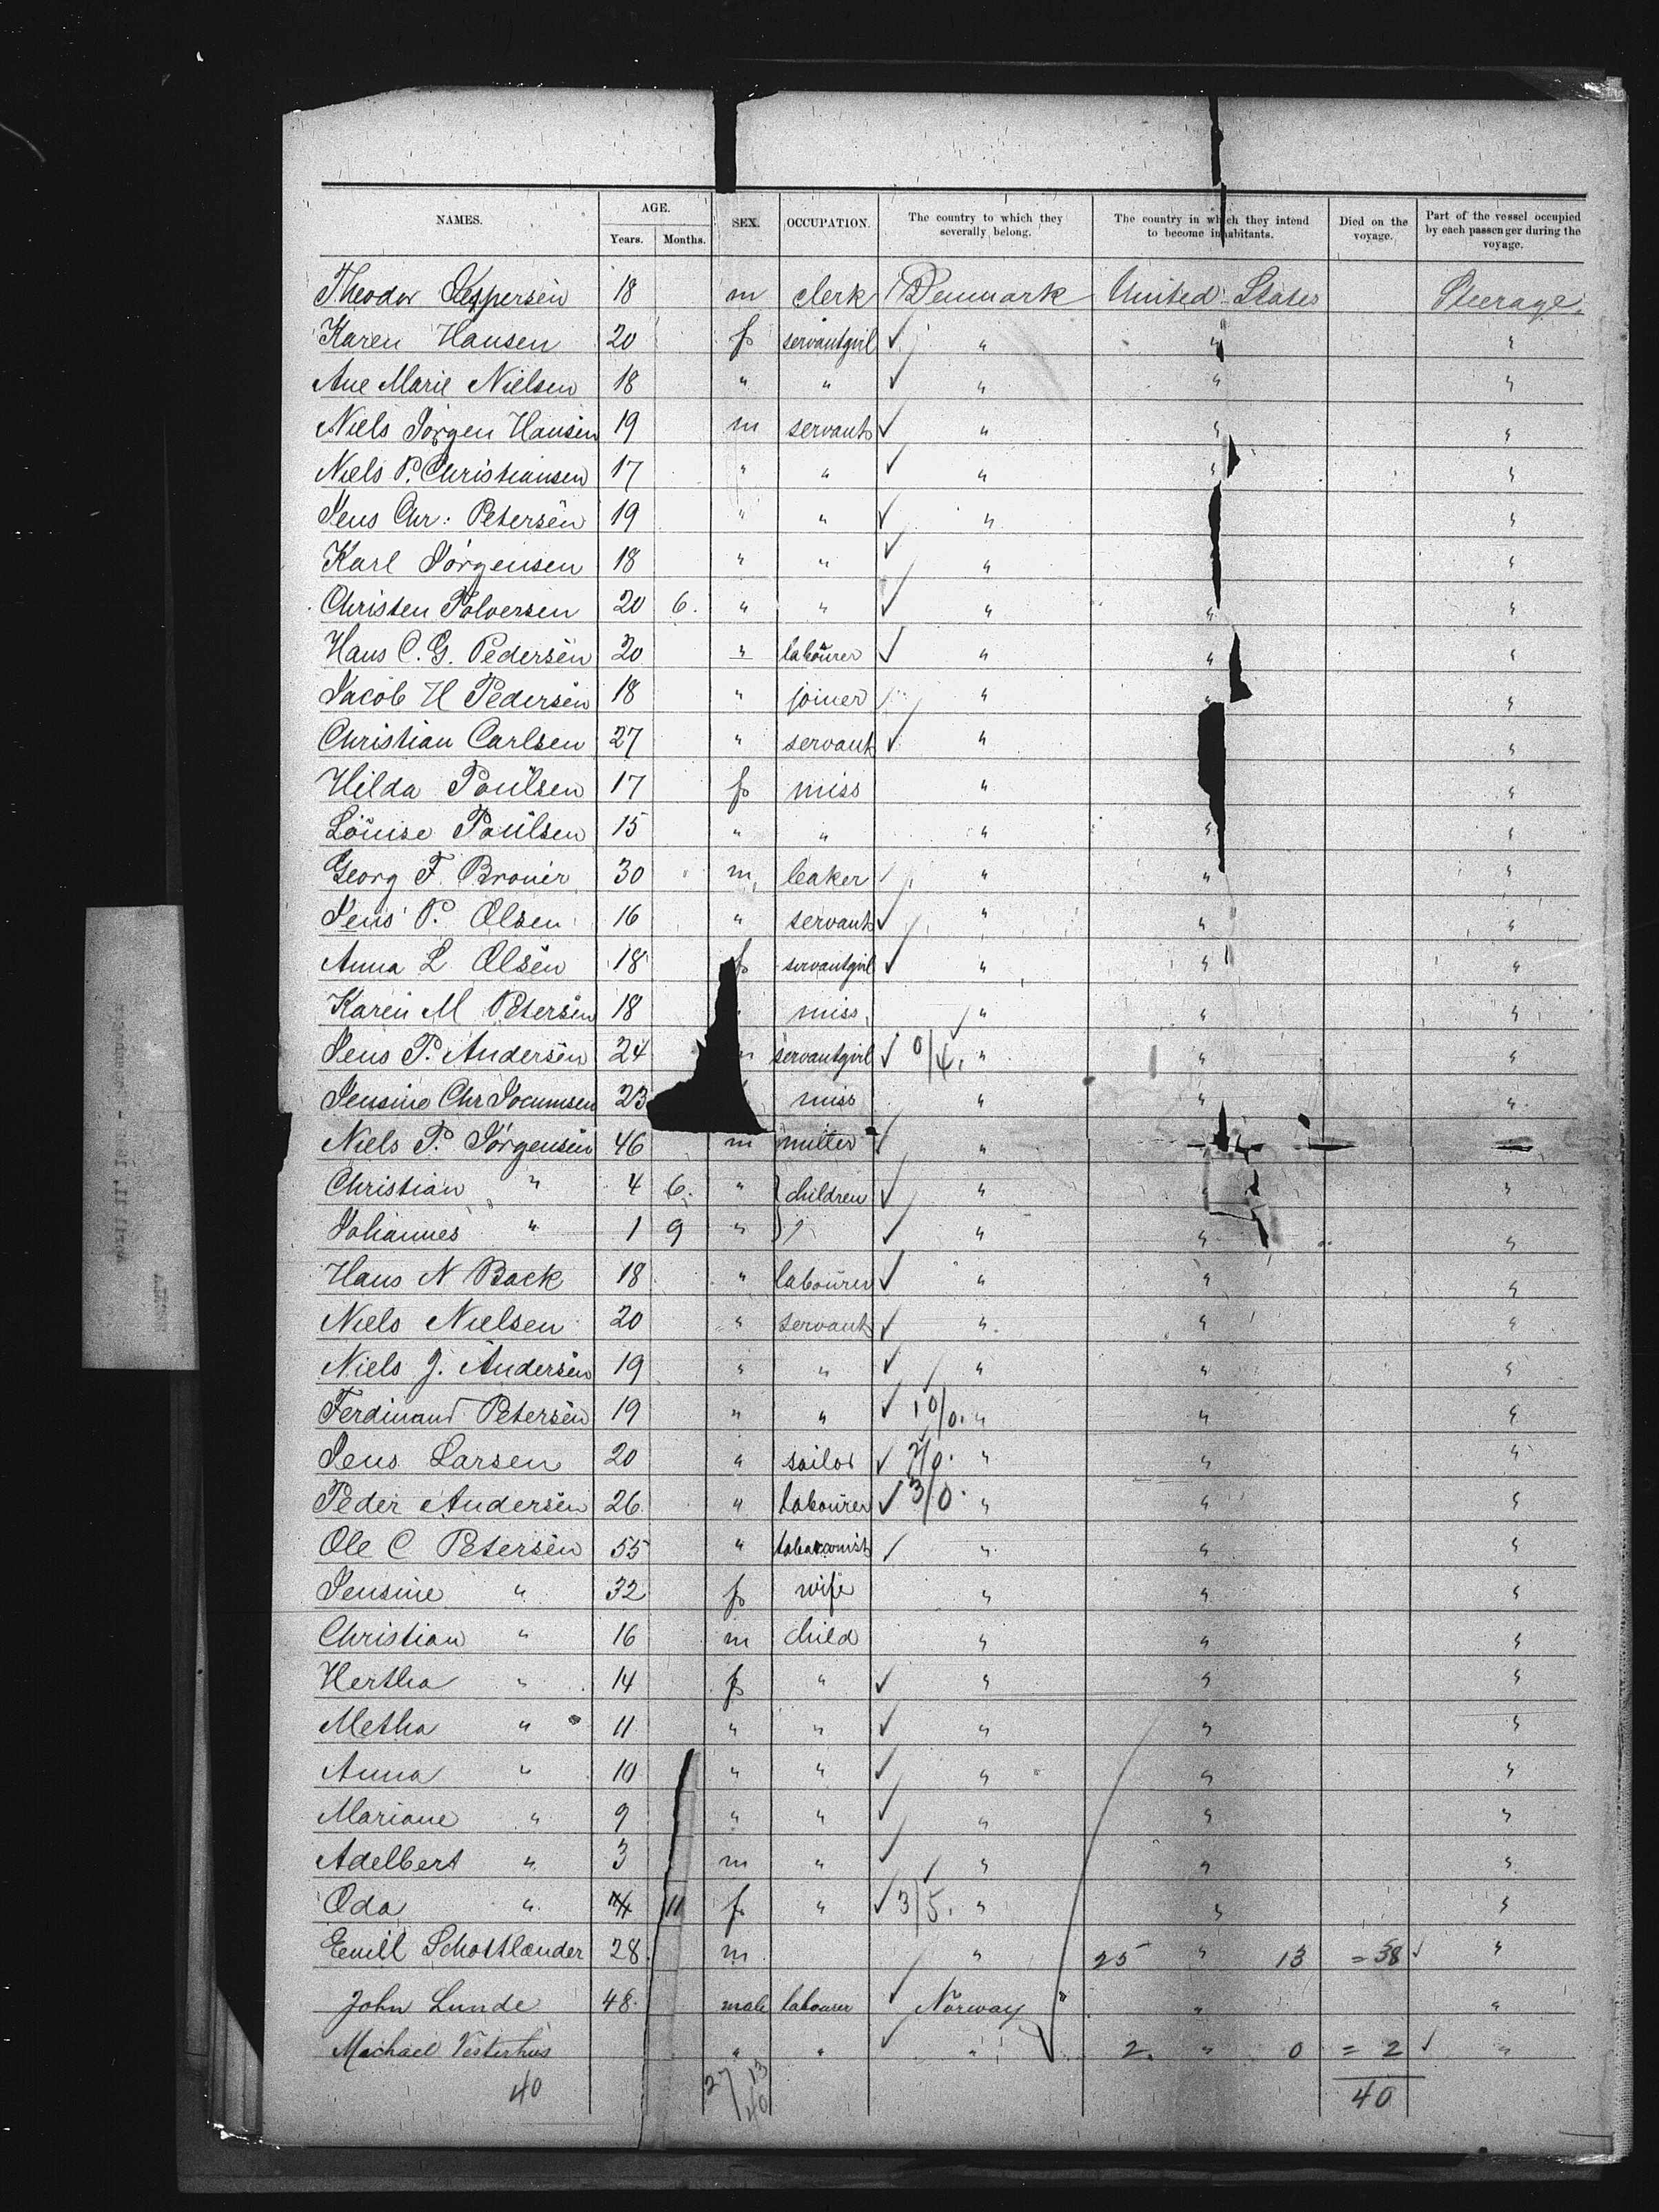 NAMES. AGE. SEX. OCCUPATION. The country to which they severally belong. The country in which they intend to become inhabitants. Died on the voyage. Part of the vessel occupied by each passenger during the voyage.
Years. Months.
Theodor Jeppersen 18 m clerk Denmark United States Steerage.
Karen Hansen 20 f servantgirl ✓ " " "
Ane Marie Nielsen 18 " " ✓ " " "
Niels Jørgen Hansen 19 m servant ✓ " " "
Niels P. Christiansen 17 " " ✓ " " "
Jens Chr: Petersen 19 " " ✓ " "
Karl Jörgensen 18 " " ✓ " "
Christen Polversen 20 6. " " ✓ " " "
Hans C. G. Pedersen 20 " labourer ✓ " " "
Jacob H Pedersen 18 " joiner " " "
Christian Carlsen 27 " servant ✓ " "
Hilda Poulsen 17 f miss " "
Louise Poulsen 15 " " " " "
Georg F. Broner 30 m leaker " " "
Jens P. Olsen 16 " servant ✓ " " "
Anna L. Olsen 18 f servantgirl ✓ " " "
Karen M Petersen 18 miss " " "
Jens P. Andersen 24 servantgirl ✓ 0/4. " " "
Jensine Chr 23 miss " " "
Niels P. Jörgensen 46 m miller ✓ "
Christian " 4 6. " children ✓ " " "
Johannes " 1 9 " ✓ " " "
Hans N Back 18 " labourer ✓ " " "
Niels Nielsen 20 " servant ✓ " " "
Niels J. Andersen 19 " " ✓ " " "
Ferdinand Petersen 19 " " ✓ 10/0. " " "
Jens Larsen 20 " sailor ✓ 2/0. " " "
Peder Andersen 26. " labourer ✓ 3/0. " " "
Ole C Petersen 55 " tobacconist ✓ " " "
Jensine " 32 f wife " " "
Christian " 16 m child " " "
Hertha " 14 f " ✓ " " "
Metha " 11 " " ✓ " " "
Anna " 10 " " ✓ " " "
Mariane " 9 " " ✓ " " "
Adelbert " 3 m " ✓ " " "
Oda " 11 f " ✓ 3/5. " " "
Emill Schottlænder 28. m " 25 " 13 = 38 ✓ "
John Lunde 48. male labourer ✓ Norway " " "
Michael Vesterhus " " ✓ " 2. " 0 = 2 ✓ "
40 27/13 40 40